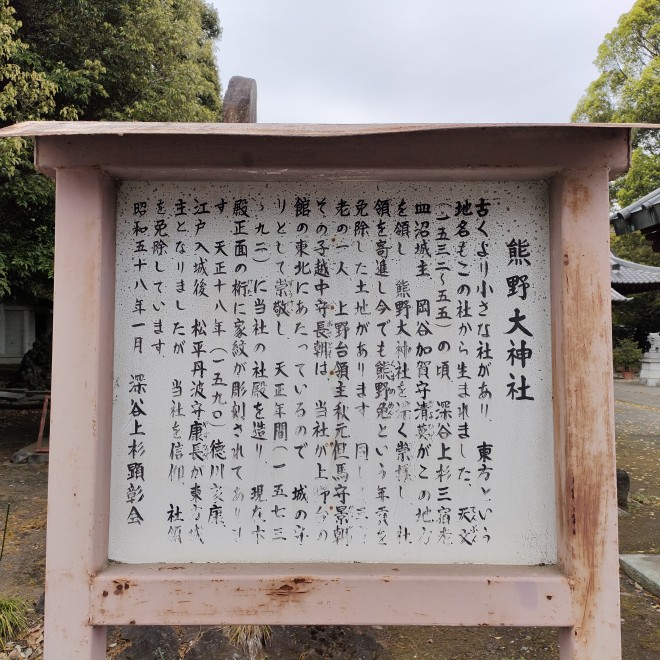 熊野大神社
古くより小さな社があり、東方という
地名もこの社から生まれました。天文
(一五三二~五五)の頃、深谷上杉三宿老
皿沼城主、岡谷加賀守清英がこの地方
を領し 熊野大神社を深く崇拝し 社
領を寄進し今でも熊野免という年貢を
免除した土地があります 同じ三宿
老の一人 上野台領主秋元但馬守景朝
その子越中守長朝は 当社が上野台の
館の東北にあたっているので 城の守
りとして崇敬し 天正年間(一五七三
~九二)に当社の社殿を造り 現在本
殿正面の桁に家紋が彫刻されてありま
す 天正十八年(一五九〇)徳川家康
江戸入城後 松平丹波守康長が東方城
主となりましたが 当社を信仰 社領
を免除しています。
昭和五十八年一月 深谷上杉顕彰会